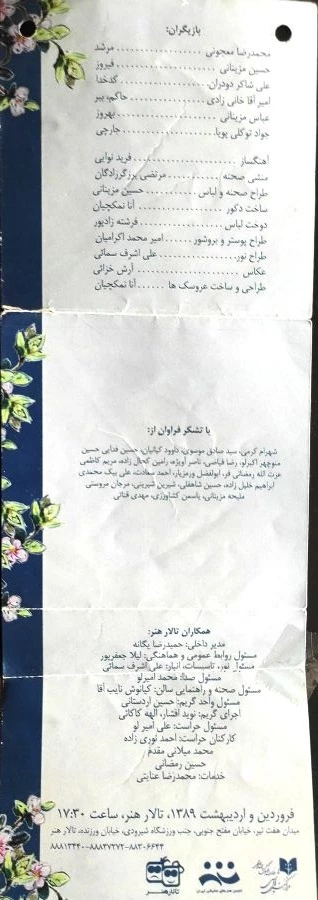 بازیگران:
محمدرضا معجونی ........ مرشد
حسین مزینانی ........ فیروز
علی شاکر دودران ........ گدخدا
امیر آقا خانی زادی ........ حاکم، ببر
عباس مزینانی ........ بهروز
جواد توکلی پویا ........ جارچی
آهنگساز ........ فرید نوایی
منشی صحنه ........ مرتضی برزگرزادگان
طراح صحنه و لباس ........ حسین مزینانی
ساخت دکور ........ آنا نمکچیان
دوخت لباس ........ فرشته زادپور
طراح پوستر و بروشور ...... امیر محمد اکرامیان
طراح نور ........ علی اشرف سمائی
عکاس ........ آرش خزائی
طراحی و ساخت عروسک ها ...... آنا نمکچیان
با تشکر فراوان از:
شهرام کرمی، سید صادق موسوی، داوود کیانیان، حسین فدایی حسین
منوچهر اکبرلو، رضا فیاضی، ناصر آویژه، رامین کحال زاده، مریم کاظمی
عزت الله رمضانی فر، ابوالفضل ورمزیار، احمد سعادت، علی بیک محمدی
ابراهیم خلیل زاده، حسین شاهقلی، شیرین شیرینی، مرجان مروستی
ملیحه مزینانی، یاسمن کشاورزی، مهدی قنائی
همکاران تالار هنر:
مدیر داخلی: حمیدرضا یگانه
مسئول روابط عمومی و هماهنگی: لیلا جعفرپور
مسئول نور، تاسیسات، انبار: علی اشرف سمائی
مسئول صدا: محمد امیرلو
مسئول صحنه و راهنمایی سالن: کیانوش نایب آقا
مسئول واحد گریم: حسین اردستانی
اجرای گریم: نوید افشار، الهه کاکائی
مسئول حراست: علی امیر لو
کارکنان حراست: احمد نوری زاده
محمد میلانی مقدم
حسین رمضانی
خدمات: محمدرضا عنایتی
فروردین و اردیبهشت ۱۳۸۹، تالار هنر، ساعت ۱۷:۳۰
میدان هفت تیر، خیابان مفتح جنوبی، جنب ورزشگاه شیرودی، خیابان ورزنده، تالار هنر
۸۸۸۱۳۴۴۰-۸۸۸۳۷۲۷۲-۸۸۳۰۶۶۴۴
تالار هنر
انجمن هنرهای نمایشی ایران